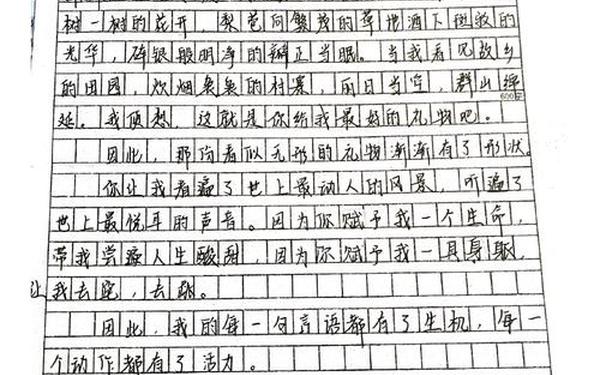 树一树的花开，梨苞向繁茂的草地洒下拯救的
光华，碎银般明净的瓣正当眠。当我看见故乡
的田园，炊烟袅袅的村寨，丽日当空，群山绵
600字
延。我顷想，这就是你给我最好的礼物吧。
因此，那份看似无形的礼物渐渐有了形状。
你让我看遍了世上最动人的风景，听遍了
世上最悦耳的声音。因为你赋予我一个生命，
带我尝遍人生酸甜，因为你赋予我一具身躯，
让我去跑，去跳。
因此，我的每一句言语都有了生机，每一
个动作都有了活力。